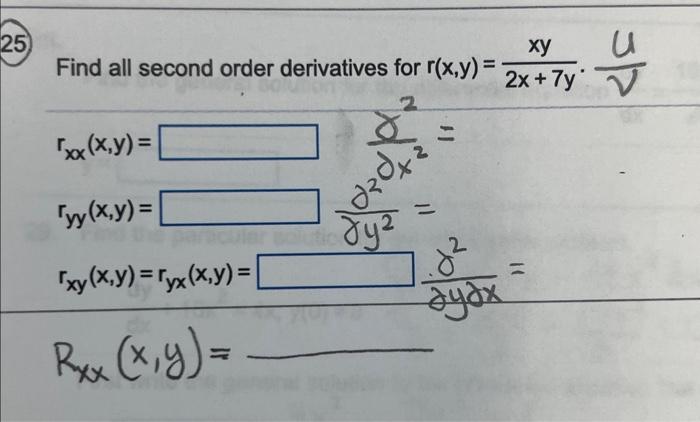 25
Find all second order derivatives for r(x,y) = xy / (2x + 7y). u/v
r_xx(x,y) = ∂²/∂x² =
r_yy(x,y) = ∂²/∂y² =
r_xy(x,y) = r_yx(x,y) = ∂²/∂y∂x =
R_xx(x,y) =